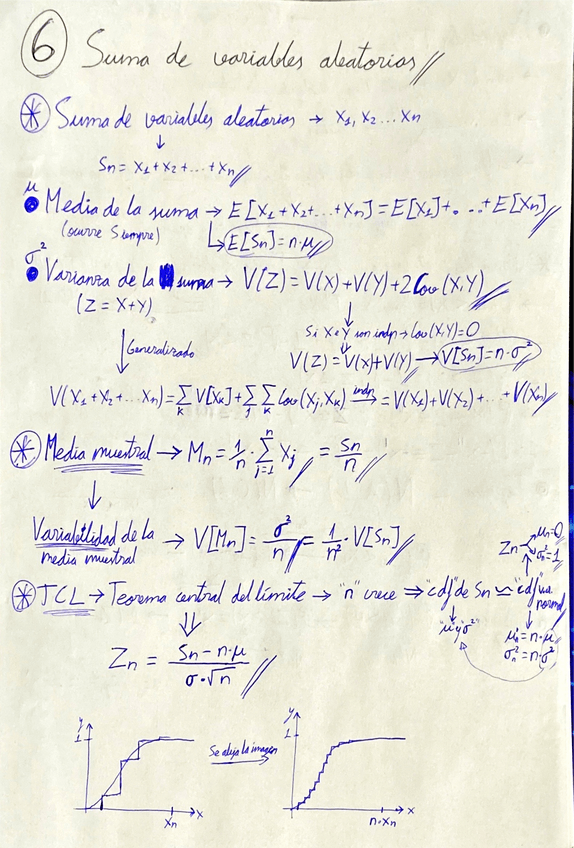 6 Suma de variables aleatorias
* Suma de variables aleatorias → X₁, X₂ ... Xn
↓
Sn = X₁ + X₂ + ... + Xn
μ
● Media de la suma → E[X₁+X₂+...+Xn] = E[X₁]+. ..+E[Xn]
(ocurre siempre)
E[Sn] = n·μ
σ²
● Varianza de la suma → V(Z) = V(X)+V(Y)+2Cov(X,Y)
(Z = X+Y)
Si X e Y son indp → Cov(X,Y)=0
Generalizado
V(Z) = V(X)+V(Y) → V[Sn] = n·σ²
V(X₁+X₂+... Xn) = ∑k V[Xk] + ∑j ∑k Cov(Xj,Xk) indp → = V(X₁)+V(X₂)+...+V(Xn)
* Media muestral → Mn = 1/n · ∑ⁿj=1 Xj = Sn/n
↓
Variabilidad de la media muestral → V[Mn] = σ²/n = 1/n² · V[Sn]
Zn μn=0
σn²=1
* TCL → Teorema central del límite → "n" crece ⇒ "cdf" de Sn ≃ "cdf" va normal
"μ y σ²"
μn = n·μ
σn² = n·σ²
Zn = (Sn − n·μ)/(σ·√n)
y
1
Xn
x
Se aleja la imagen
y
1
n·Xn
x